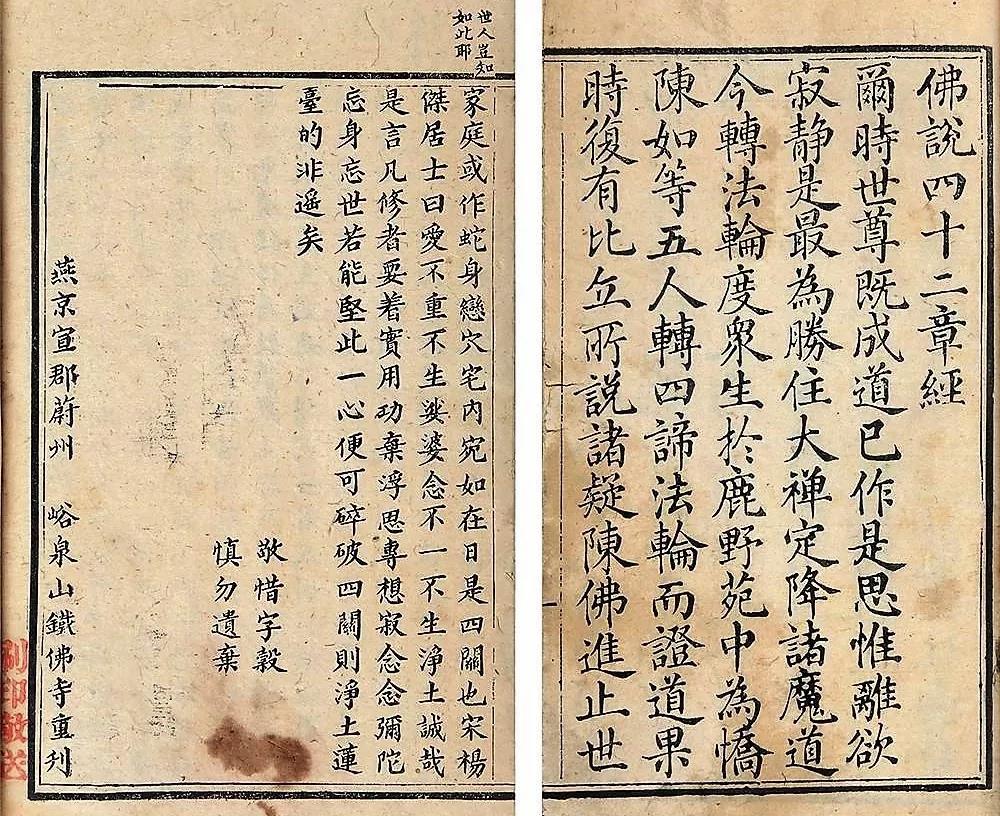 佛說四十二章經
爾時世尊既成道已作是思惟離欲
寂静是最為勝住大禅定降諸魔道
今轉法輪度衆生於鹿野苑中為憍
陳如等五人轉四諦法輪而證道果
時復有比丘所說諸疑陳佛進止世
世人豈知
如此耶
家庭或作蛇身戀穴宅內宛如在日是四關也宋楊
傑居士曰愛不重不生娑婆念不一不生淨土誠哉
是言凡修者要着實用功棄浮思專想寂念念彌陀
忘身忘世若能堅此一心便可碎破四關則淨土蓮
臺的非遥矣
敬惜字穀
慎勿遺棄
燕京宣郡蔚州 峪泉山鐵佛寺重刋
刷印敬送